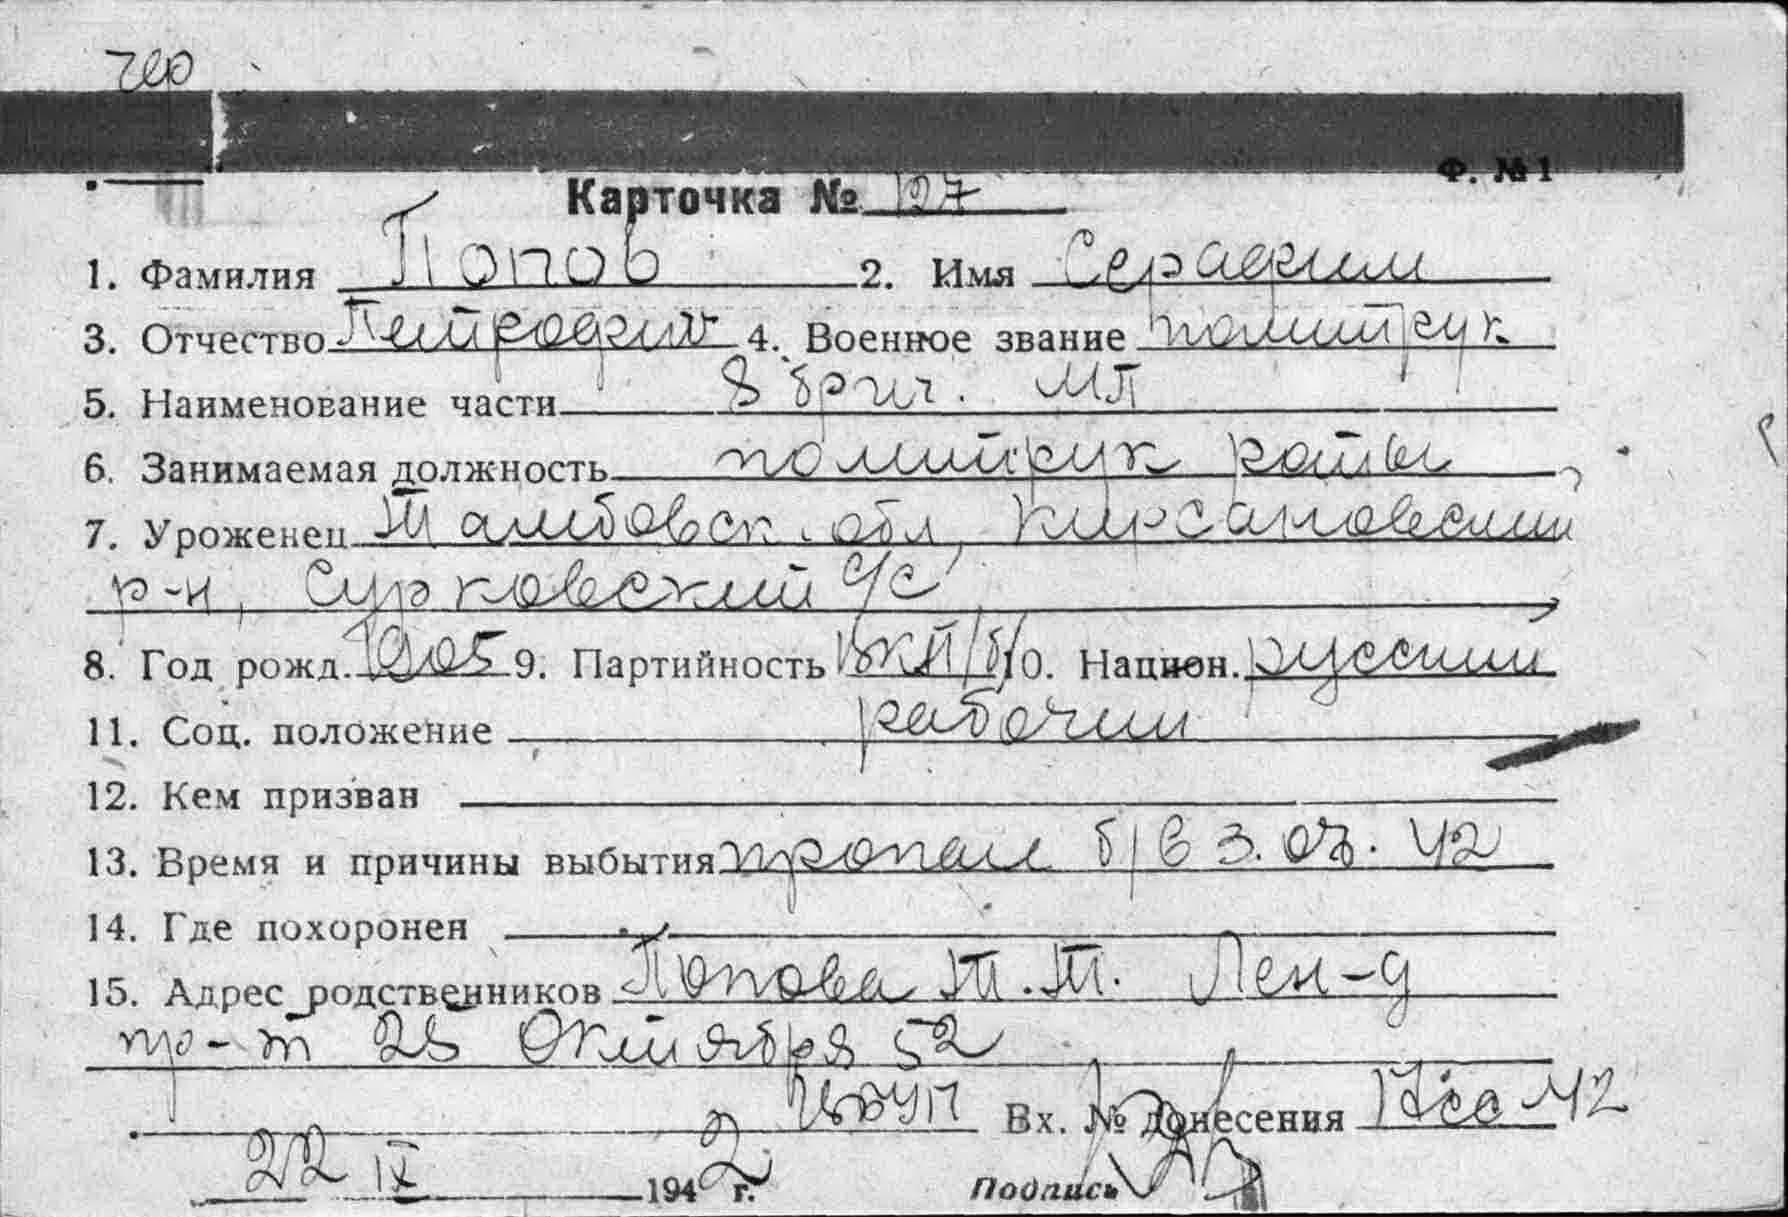 Ф. №1
Карточка № 127
1. Фамилия Попов 2. Имя Серафим
3. Отчество 4. Военное звание политрук
5. Наименование части 8 бриг. МП
6. Занимаемая должность политрук роты
7. Уроженец Тамбовск. обл, Кирсановский
р-н, Сурковский с/с
8. Год рожд. 1905 9. Партийность ВКП/б/ 10. Национ. русский
11. Соц. положение рабочий
12. Кем призван
13. Время и причины выбытия пропал б/в 3. 42
14. Где похоронен
15. Адрес родственников Попова Т.Т. Лен-д
пр-т 25 Октября 52
Вх. № донесения 17сс 42
22 IX 1942 г. Подпись